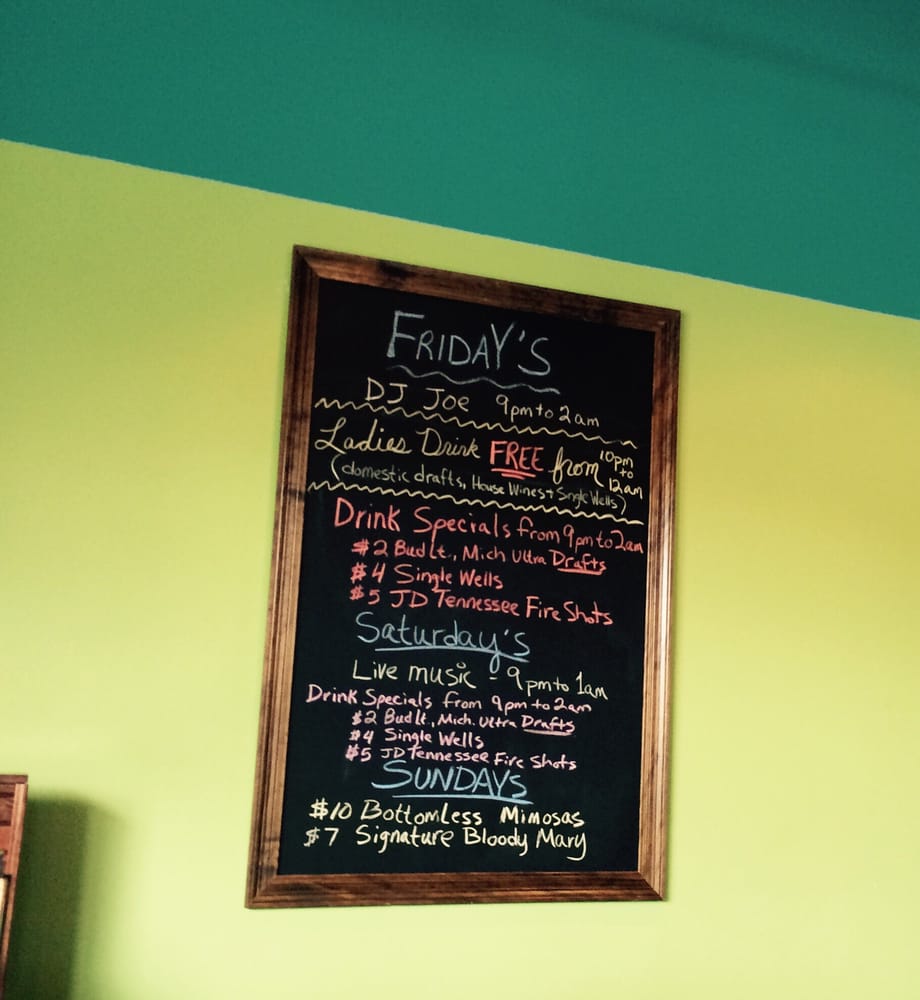 FRIDAY'S
DJ JOE 9pm to 2am
Ladies Drink FREE from 10pm to 12am
(domestic drafts, House Wines + Single Wells)
Drink Specials from 9pm to 2am
$2 Bud Lt., Mich Ultra Drafts
$4 Single Wells
$5 JD Tennessee Fire Shots
Saturday's
Live music - 9pm to 1am
Drink Specials from 9pm to 2am
$2 Bud Lt., Mich. Ultra Drafts
$4 Single Wells
$5 JD Tennessee Fire Shots
SUNDAYS
$10 Bottomless Mimosas
$7 Signature Bloody Mary